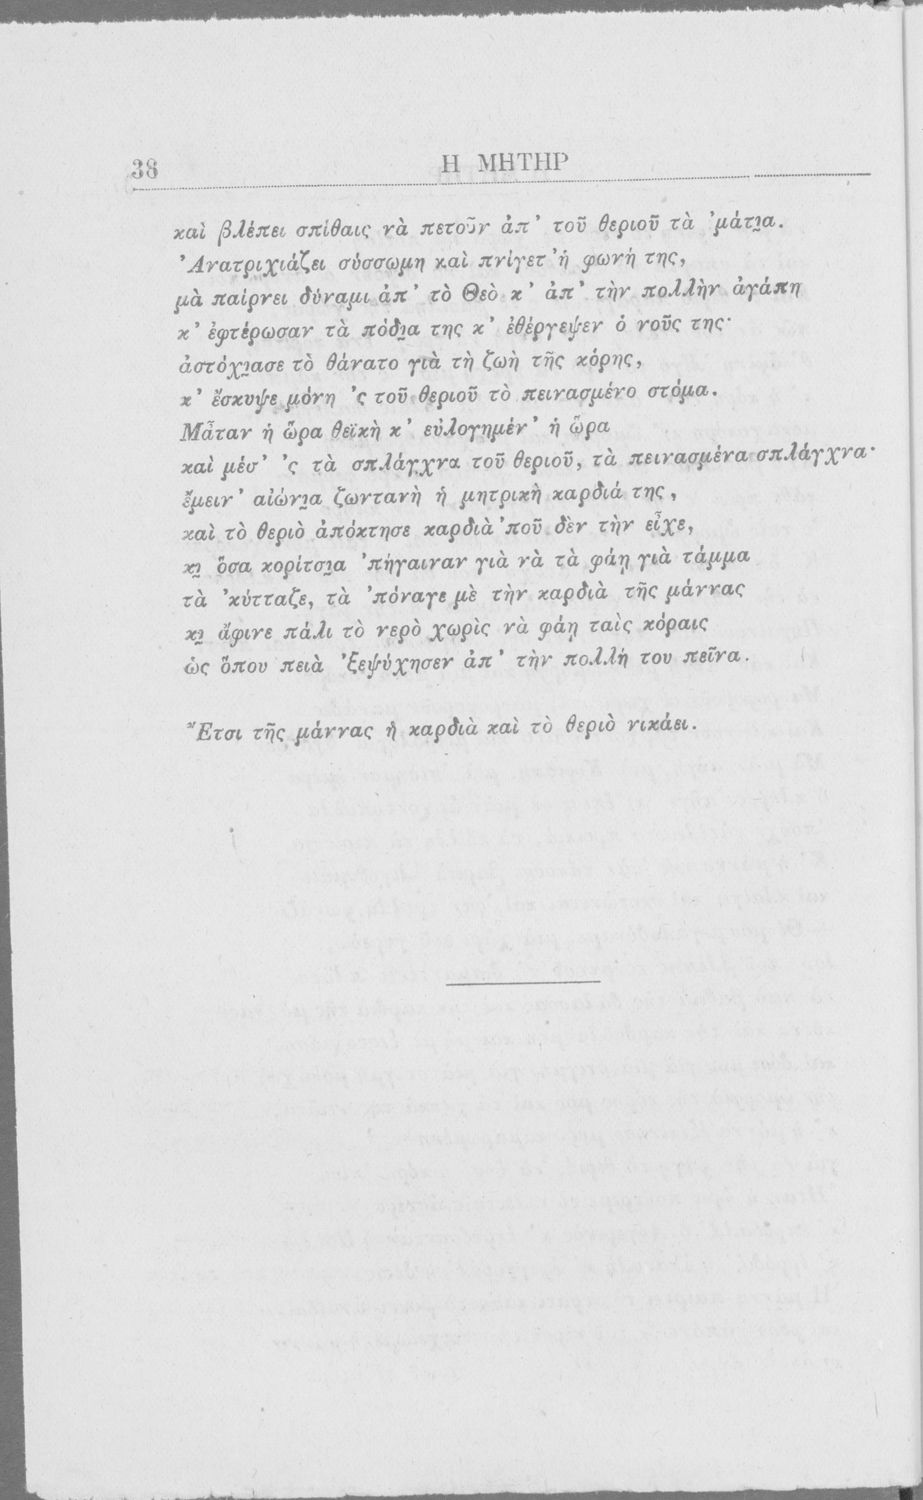 38
Η ΜΗΤΗΡ
καὶ βλέπει σπίθαις νὰ πετοῦν ἀπ’ τοῦ θεριοῦ τὰ ’μάτι̯α.
’Ανατριχιάζει σύσσωμη καὶ πνίγετ’ ἡ φωνή της,
μὰ παίρνει δύναμι ἀπ’ τὸ Θεὸ κ’ ἀπ’ τὴν πολλὴν ἀγάπη
κ’ ἐφτέρωσαν τὰ πόδι̯α της κ’ ἐθέργεψεν ὁ νοῦς της·
ἀστόχι̯ασε τὸ θάνατο γιὰ τὴ ζωὴ τῆς κόρης,
κ’ ἔσκυψε μόνη ’ς τοῦ θεριοῦ τὸ πεινασμένο στόμα.
Μᾶταν ἡ ὥρα θεϊκὴ κ’ εὐλογημέν’ ἡ ὥρα
καὶ μέσ’ ’ς τὰ σπλάγχνα τοῦ θεριοῦ, τὰ πεινασμένα σπλάγχνα·
ἔμειν’ αἰώνι̯α ζωντανὴ ἡ μητρικὴ καρδιά της,
καὶ τὸ θεριὸ ἀπόκτησε καρδιὰ ’ποῦ δὲν τὴν εἶχε,
κι̯ ὅσα κορίτσι̯α ’πήγαιναν γιὰ νὰ τὰ φάῃ γιὰ τάμμα
τὰ ’κύτταζε, τὰ ’πόναγε μὲ τὴν καρδιὰ τῆς μάννας
κι̯ ἄφινε πάλι τὸ νερὸ χωρὶς νὰ φάῃ ταὶς κόραις
ὡς ὅπου πειὰ ’ξεψύχησεν ἀπ’ τὴν πολλή του πεῖνα.
Ἔτσι τῆς μάννας ἡ καρδιὰ καὶ τὸ θεριὸ νικάει.